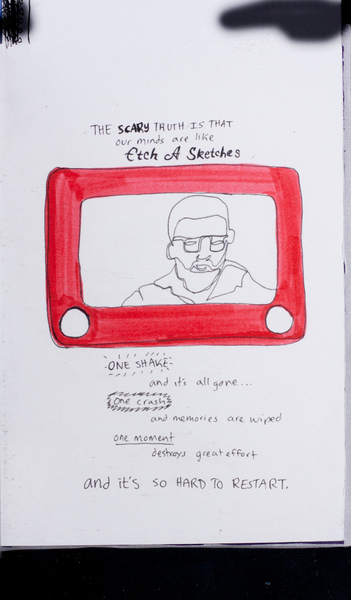 THE SCARY TRUTH IS THAT
our minds are like
Etch A Sketches
ONE SHAKE
and it's all gone...
one crash
and memories are wiped
one moment
destroys great effort
and it's SO HARD TO RESTART.